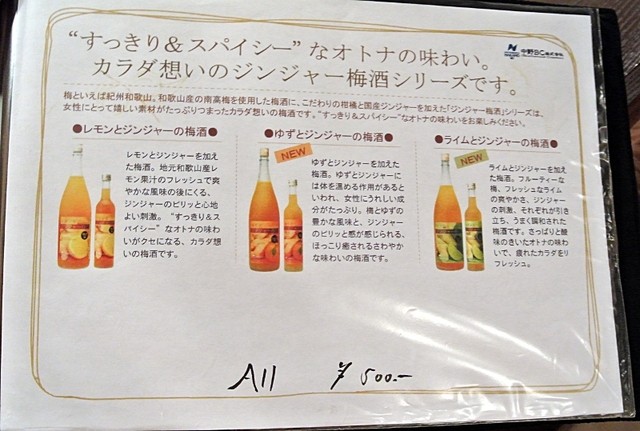 “すっきり＆スパイシー”なオトナの味わい。
カラダ想いのジンジャー梅酒シリーズです。
中野BC株式会社
梅といえば紀州和歌山。和歌山産の南高梅を使用した梅酒に、こだわりの柑橘と国産ジンジャーを加えた「ジンジャー梅酒」シリーズは、
女性にとって嬉しい素材がたっぷりつまったカラダ想いの梅酒です。“すっきり＆スパイシー”なオトナの味わいをお楽しみください。
●レモンとジンジャーの梅酒●
レモンとジンジャーを加え
た梅酒。地元和歌山産レ
モン果汁のフレッシュで爽
やかな風味の後にくる、
ジンジャーのピリッと心地
よい刺激。“すっきり＆ス
パイシー”なオトナの味わ
いがクセになる、カラダ想
いの梅酒です。
●ゆずとジンジャーの梅酒●
NEW
ゆずとジンジャーを加えた
梅酒。ゆずとジンジャーに
には体を温める作用があると
いわれ、女性にうれしい成
分がたっぷり。梅とゆずの
豊かな風味と、ジンジャー
のピリッと感が感じられる、
ほっこり癒されるさわやか
な味わいの梅酒です。
●ライムとジンジャーの梅酒●
NEW
ライムとジンジャーを加え
た梅酒。フルーティーな
梅、フレッシュなライム
の爽やかさ、ジンジャー
の刺激、それぞれが引き
立ち、うまく調和された
梅酒です。さっぱりと酸
味のきいたオトナの味わ
いで、疲れたカラダをリ
フレッシュ。
All ¥500.-